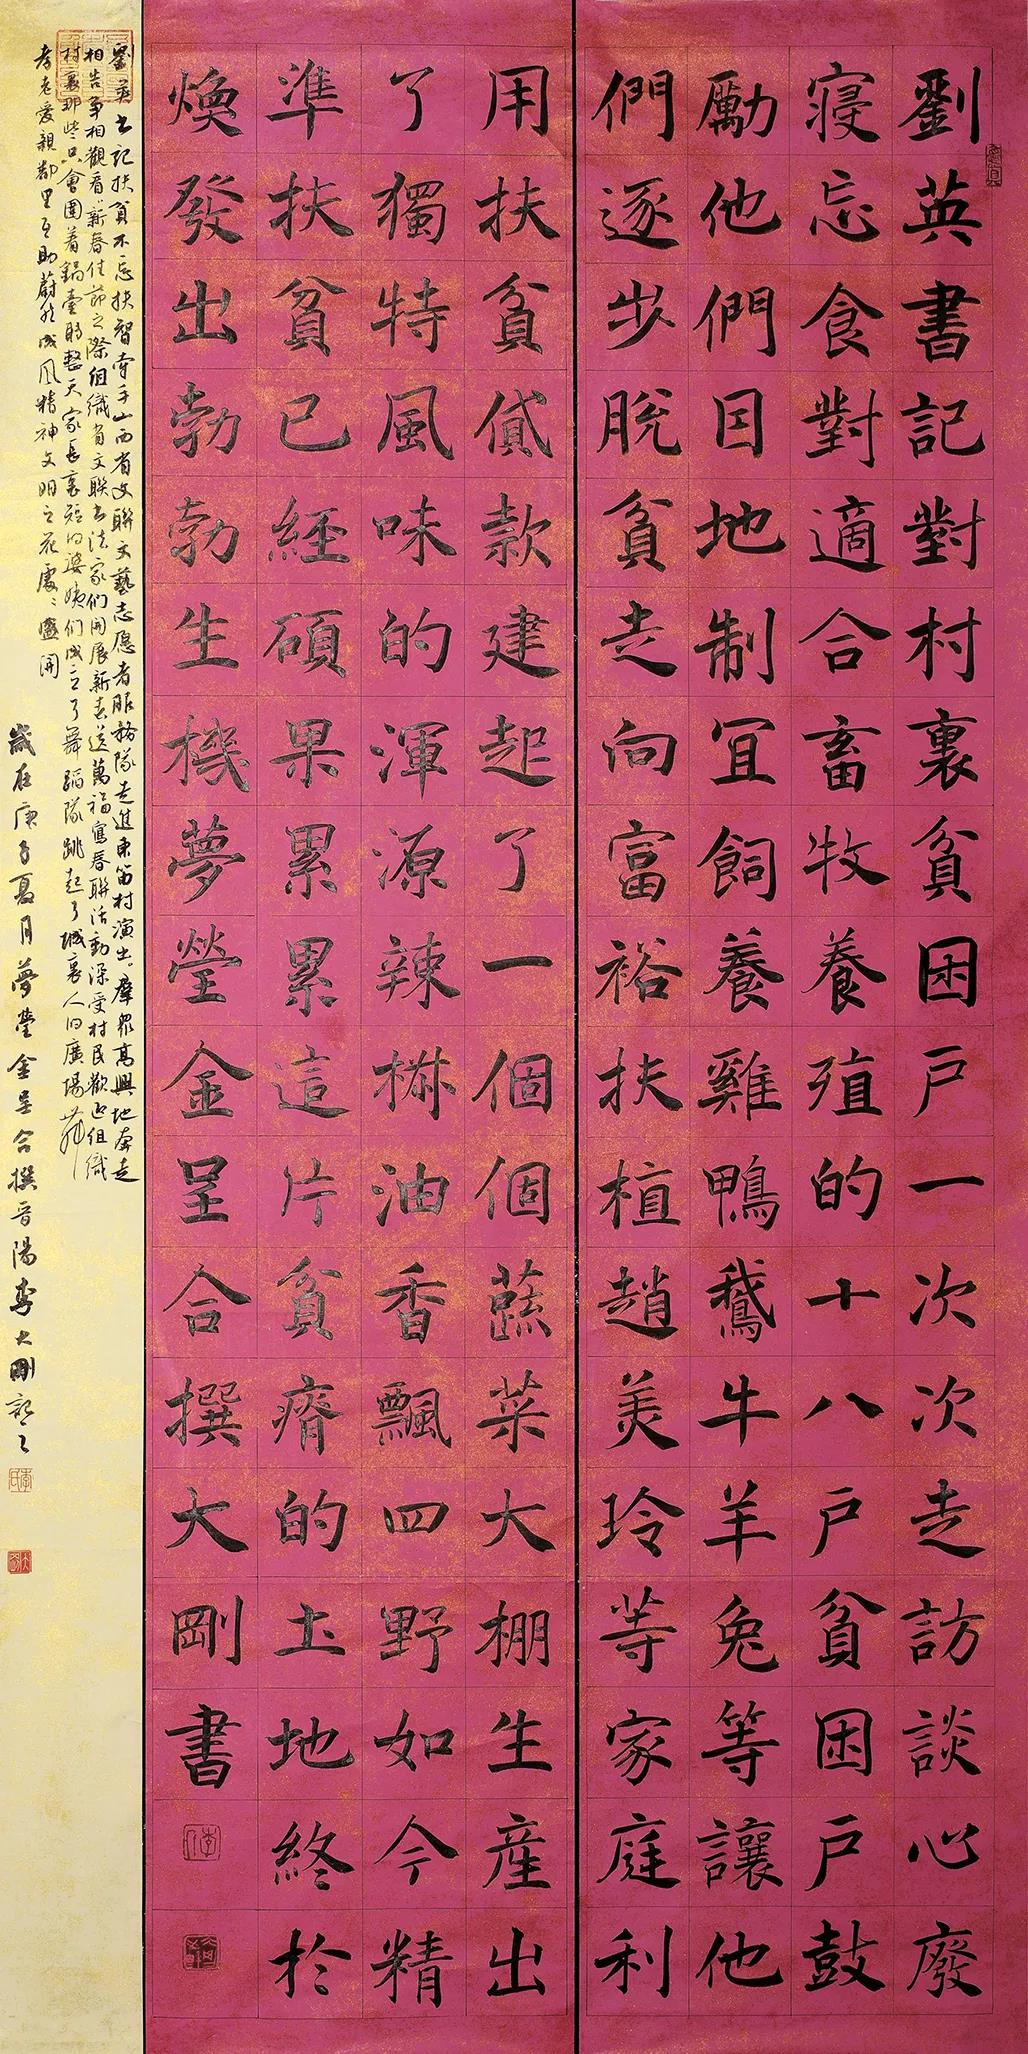 劉英書記對村裏貧困戶一次次走訪談心廢
寢忘食對適合畜牧養殖的十八戶貧困戶鼓
勵他們因地制宜飼養雞鴨鵝牛羊兔等讓他
們逐步脫貧走向富裕扶植趙美玲等家庭利
用扶貧貸款建起了一個個蔬菜大棚生產出
了獨特風味的渾源辣椒油香飄四野如今精
準扶貧已經碩果累累這片貧瘠的土地終於
煥發出勃勃生機夢瑩金呈合撰大剛書
劉英書記扶貧不忘扶智牽手山西省文聯文藝志愿者服務隊走進東笛村演出群眾高興地奔走
相告爭相觀看新春佳節之際組織省文聯書法家們開展新春送萬福寫春聯活動深受村民歡迎組織
村裏那些只會圍着鍋臺轉整天家長裏短的婆姨们成立了舞蹈隊跳起了城裏人的廣場舞
孝老愛親鄰里互助蔚然成風精神文明之花處處盛開
歲在庚子夏月夢瑩金呈合撰晉陽李大剛記之